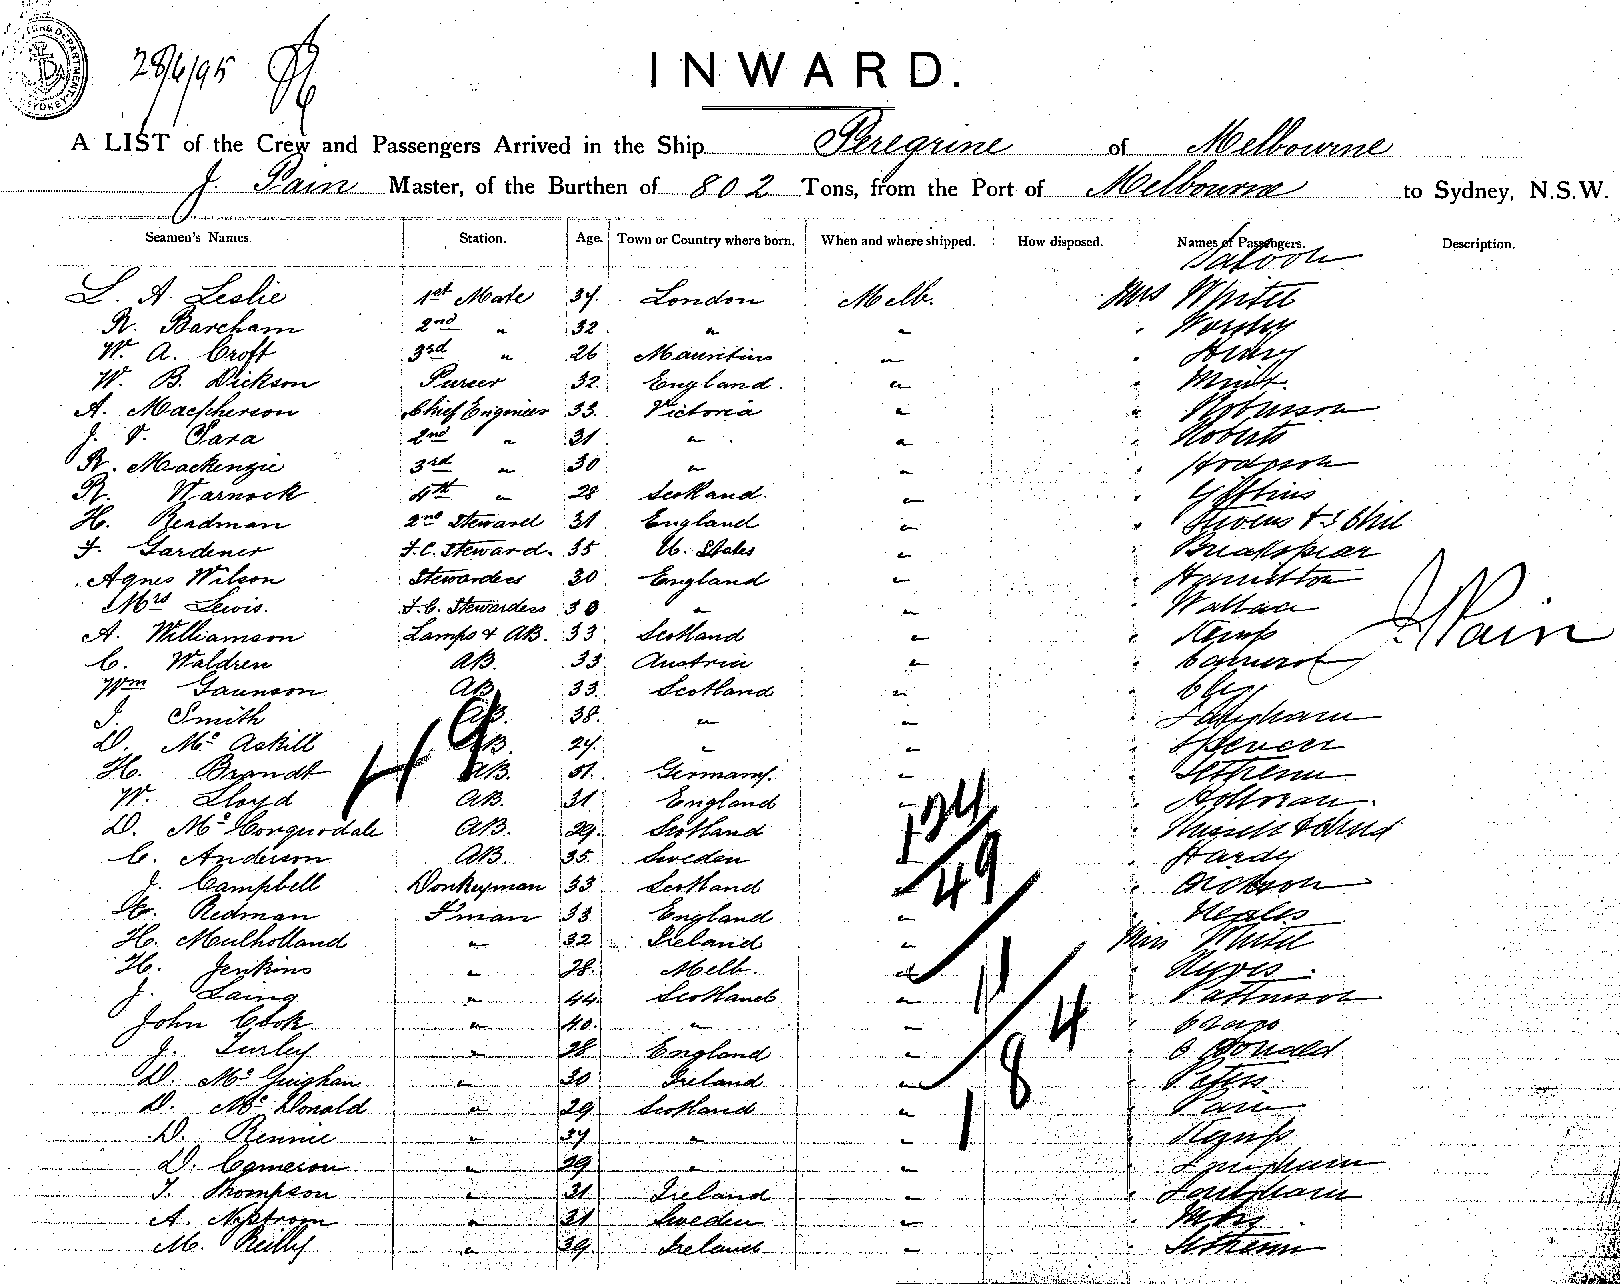 28/6/95
INWARD.
A LIST of the Crew and Passengers Arrived in the Ship Peregrine of Melbourne
J. Pain Master, of the Burthen of 802 Tons, from the Port of Melbourne to Sydney, N.S.W.
Seamen's Names. Station. Age. Town or Country where born. When and where shipped. How disposed. Names of Passengers. Description.
Saloon
L. A. Leslie 1st Mate 37. London Melb. Mrs White
R. Barcham 2nd " 32 " "
W. A. Croft 3rd " 26 Mauritius " " Henry
W. B. Dickson Purser 32 England. " "
A. Macpherson Chief Engineer 33 Victoria " " Robinson
J. T. Para 2nd " 31 " " " Roberts
R. Mackenzie 3rd " 30 " " " Hodgson
R. Warnock 4th " 28 Scotland " " Gibbins
H. Readman 2nd Steward 31 England " " Stevens & 3 Chil
F. Gardener F.C. Steward. 35 U. States " " Breakspear
Agnes Wilson Stewardess 30 England " " Hamilton
Mrs Lewis. F.C. Stewardess 30 " " " Wallace
A. Williamson Lamps & AB. 33 Scotland " " Kemp J. Pain
C. Waldren AB. 33 Austria " " Cameron
Wm Gaunson AB 33 Scotland " "
J. Smith AB. 38. " " " Langham
D. Mc Askill AB. 27. " " " Spencer
H. Brandt AB. 51. Germany. " "
W. Lloyd AB. 31 England " " Holtman
D. Mc Corquodale AB. 29. Scotland " " Russell & Child
C. Anderson AB. 35. Sweden " " Hardy
J. Campbell Donkeyman 33 Scotland " " Dickson
H. Redman F'man 33 England " " Heales
H. Mulholland " 32 Ireland " Miss White
H. Jenkins " 28. Melb. " "
J. Laing " 44 Scotland " " Pattinson
John Cook " 40. " " "
J. Turley " 28 England " " O Donald
D. Mc Guighan " 30 Ireland " " Peters
D. Mc Donald " 29 Scotland " " Pain
D. Rennie " 37 " " " Kemp
D. Cameron " 29 " " " Langham
T. Thompson " 31 Ireland " " Langham
A. Nystrom " 31 Sweden " "
M. Reilly " 39 Ireland " "
49
134
49
11
84
1